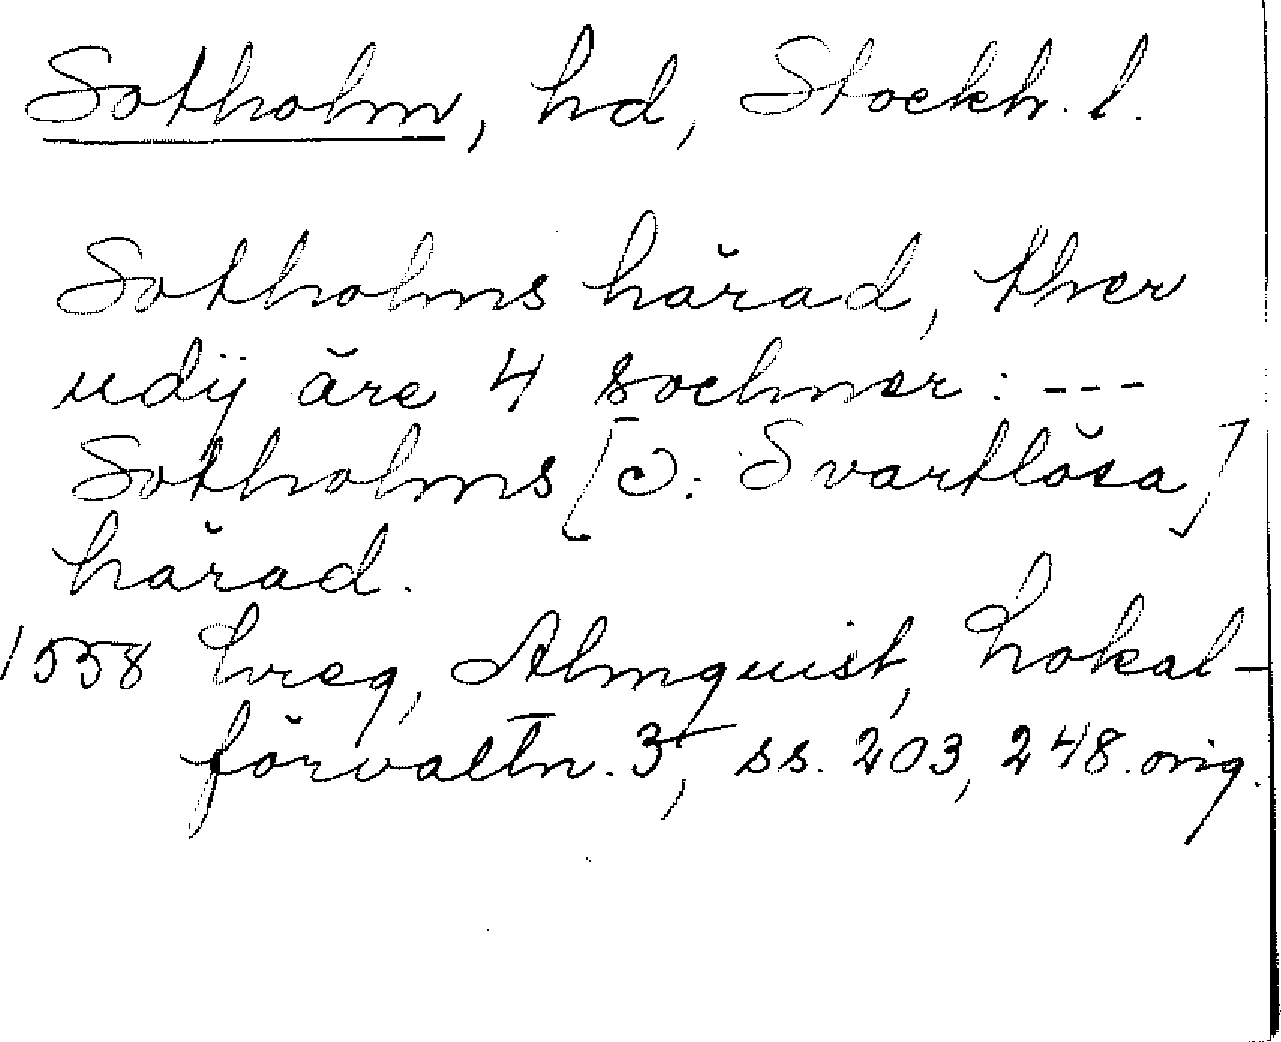 Sotholm, hd, Stockh. l.
Sotholms härad, ther
udÿ äre 4 sochner: ---
Sotholms [ɔ: Svartlösa]
härad.
1558 hreg, Almquist, Lokal-
förvaltn. 3, ss. 203, 248. orig.